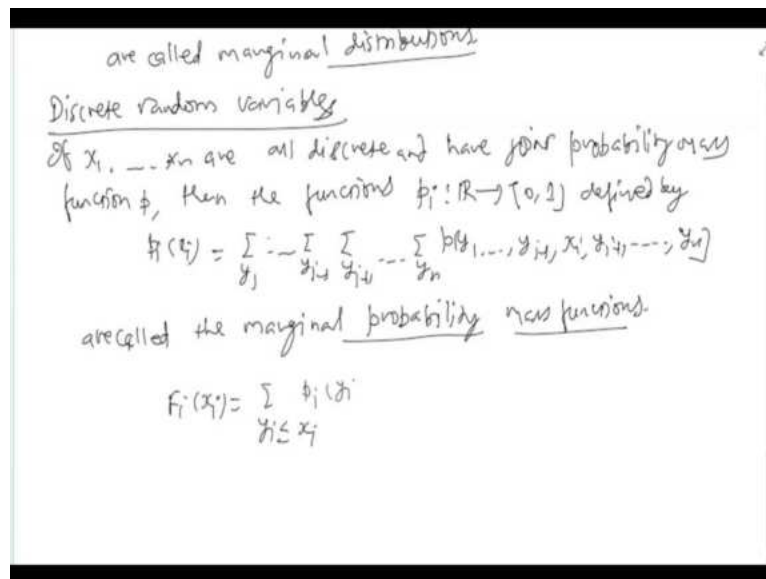 are called marginal distributions
Discrete random variables
If x₁, ... xₙ are all discrete and have joint probability mass
function p, then the functions pᵢ: ℝ → [0,1] defined by
pᵢ(xᵢ) = Σ_{y₁} ... Σ_{yᵢ₋₁} Σ_{yᵢ₊₁} ... Σ_{yₙ} p(y₁, ..., yᵢ₋₁, xᵢ, yᵢ₊₁, ..., yₙ)
are called the marginal probability mass functions.
Fᵢ(xᵢ) = Σ_{yᵢ ≤ xᵢ} pᵢ(yᵢ